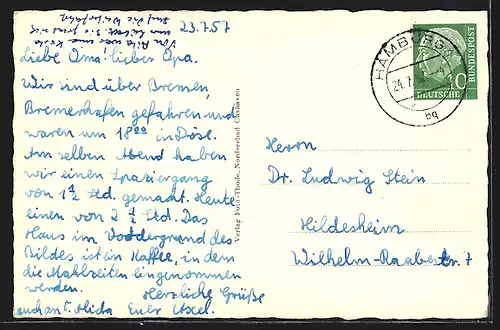 23.7.57
Liebe Oma! lieber Opa.
Wir sind über Bremen,
Bremerhafen gefahren und
waren um 18⁰⁰ in Döse.
Am selben Abend haben
wir einen Spaziergang
von 1 ½ Std. gemacht. Heute
einen von 2 ½ Std. Das
Haus im Voddergrund des
Bildes ist ein Kaffee, in dem
die Mahlzeiten eingenommen
werden. Herzliche Grüße
Euer Axel.
Verlag Foto-Thode, Nordseebad Cuxhaven
HAMBURG
24.7.
bq
10
DEUTSCHE
BUNDESPOST
Herrn
Dr. Ludwig Stein
Hildesheim
Wilhelm-Raabestr. 7